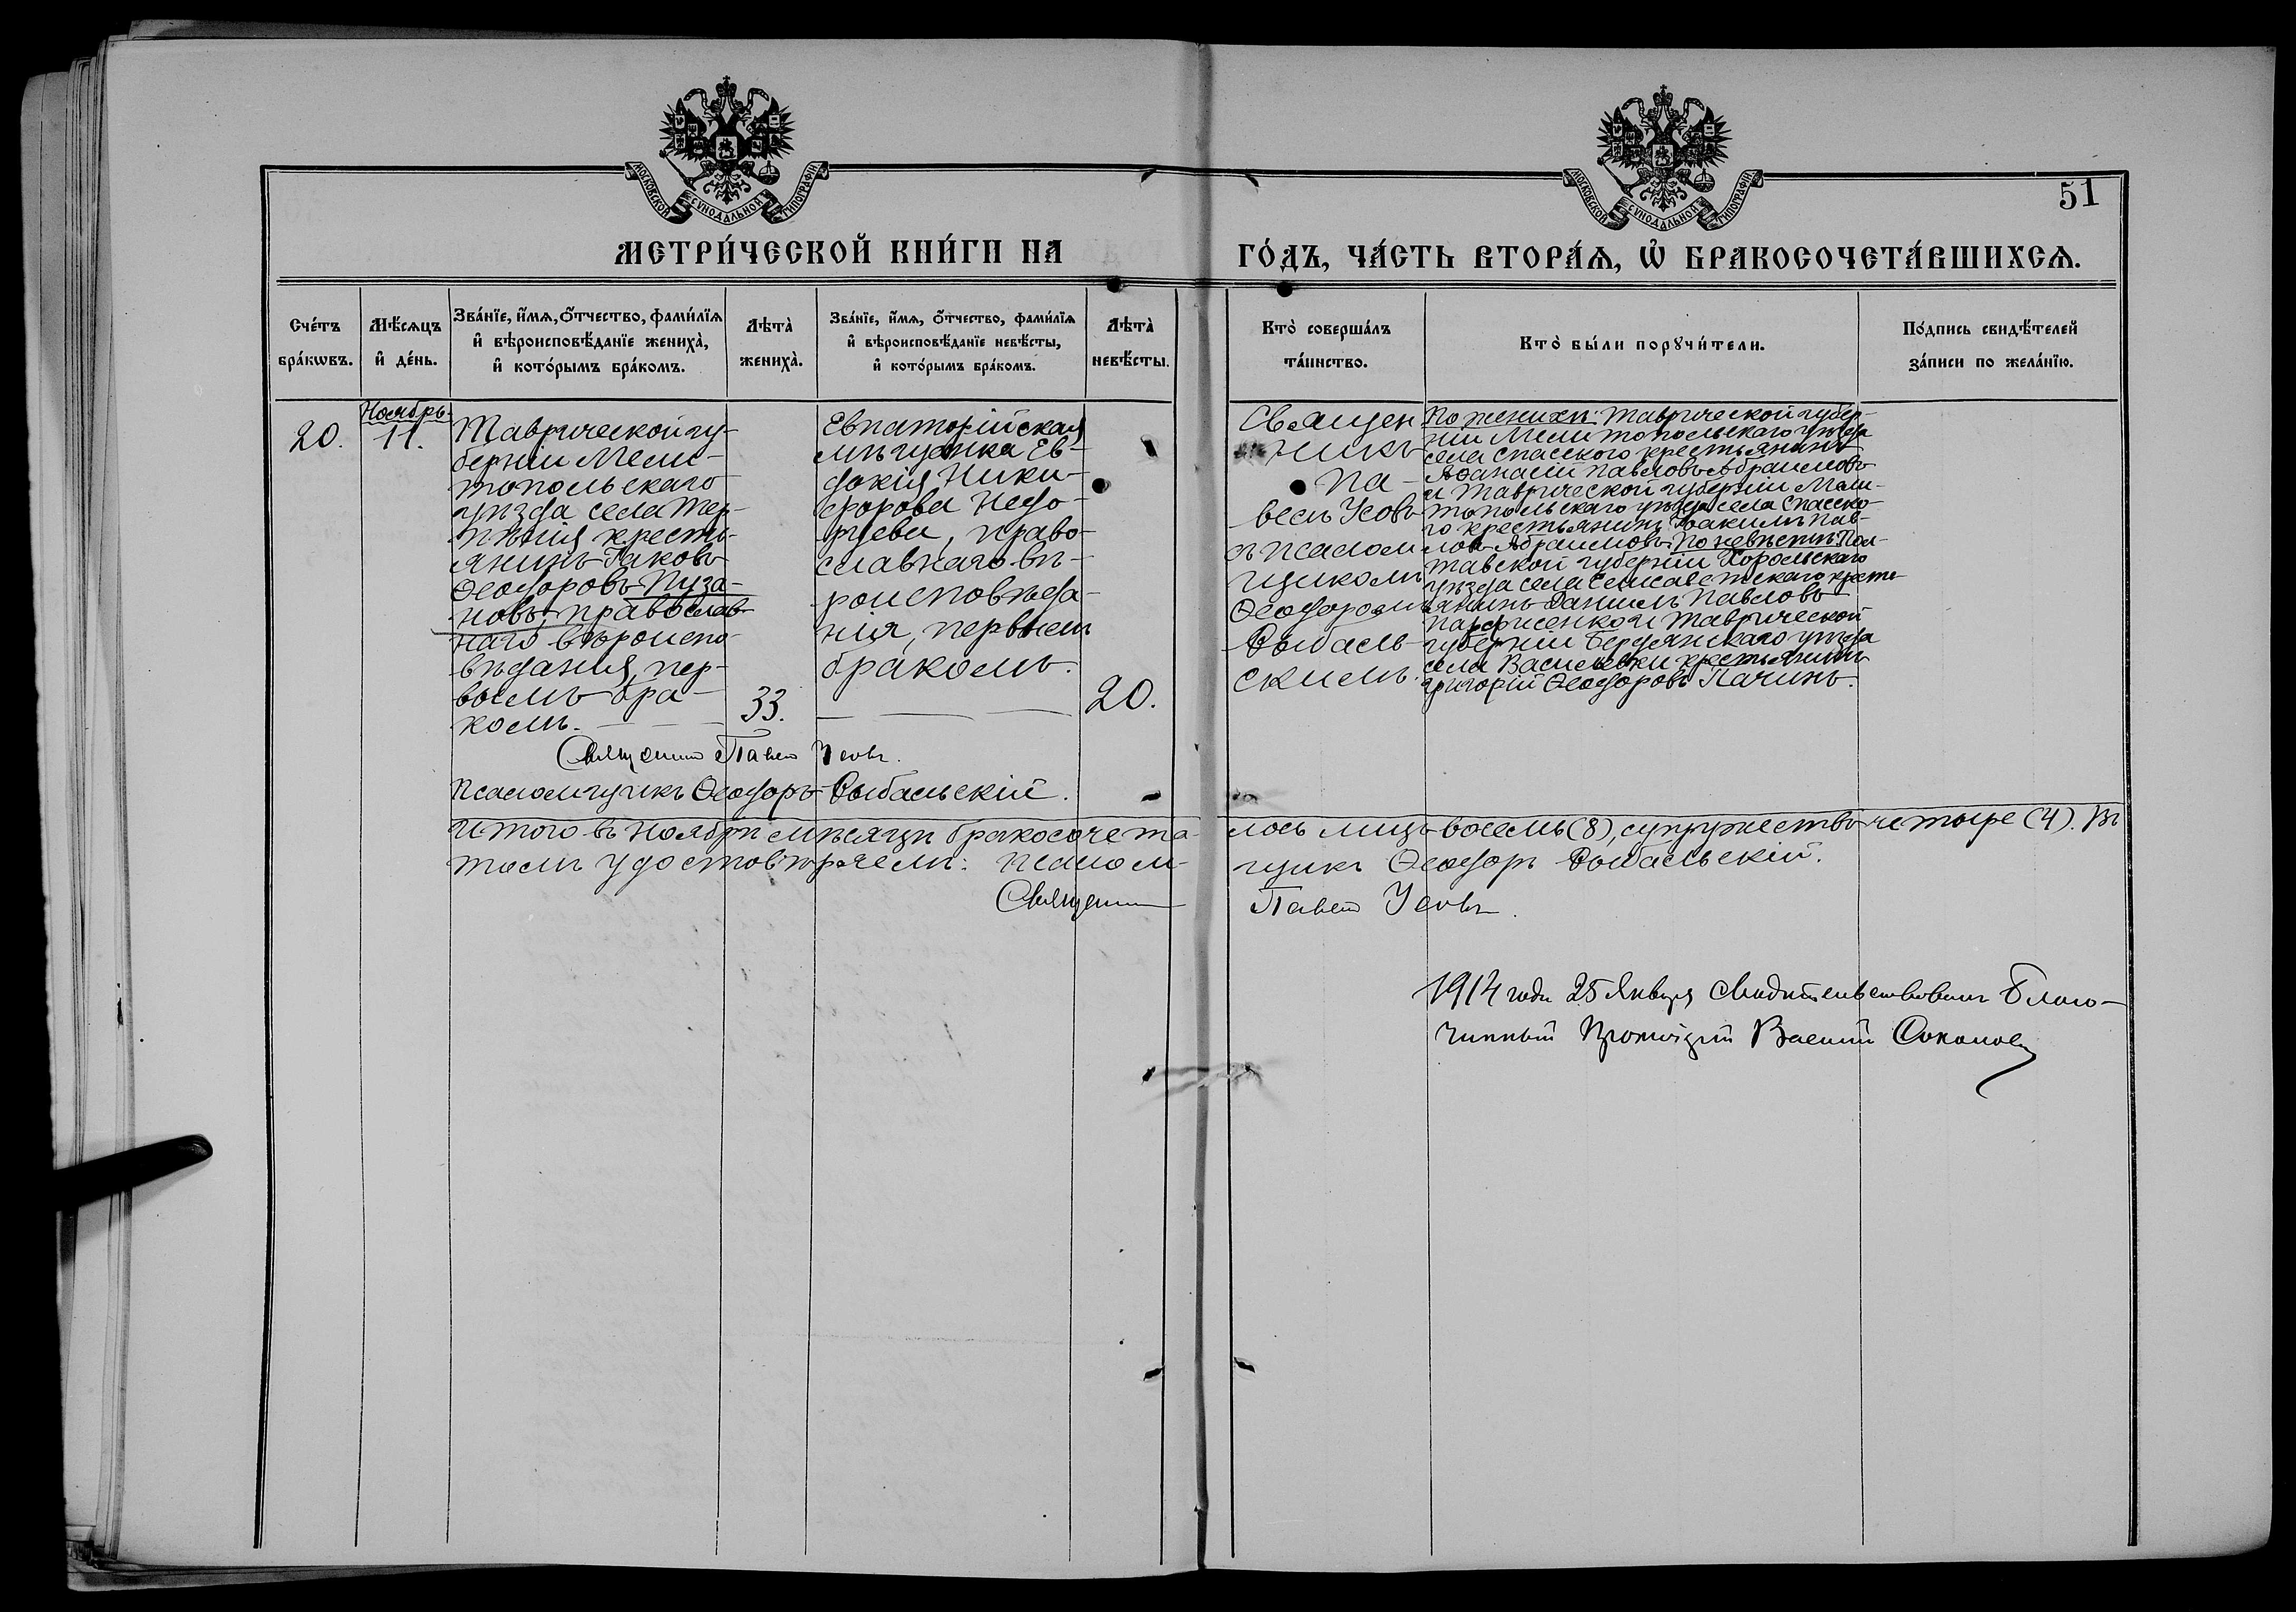 МОСКОВСКОЙ СУНОДАЛЬНОЙ ТИПОГРАФІИ
МОСКОВСКОЙ СУНОДАЛЬНОЙ ТИПОГРАФІИ
51
МЕТРИ́ЧЕСКОЙ КНИ́ГИ НА
ГО́ДЪ, ЧА́СТЬ ВТОРА́Ѧ, Ѽ БРАКОСОЧЕТА́ВШИХСѦ.
Сче́тъ
бра́кѡвъ.
Мѣ́сѧцъ
и҆ де́нь.
Зва́нїе, и҆́мѧ, ѻ҆́тчество, фами́лїѧ
и҆ вѣроисповѣ́данїе жениха̀,
и҆ кото́рымъ бра́комъ.
Лѣта̀
жениха̀.
Зва́нїе, и҆́мѧ, ѻ҆́тчество, фами́лїѧ
и҆ вѣроисповѣ́данїе невѣ́сты,
и҆ кото́рымъ бра́комъ.
Лѣта̀
невѣ́сты.
Кто̀ соверша́лъ
та́инство.
Кто̀ бы́ли порꙋчи́тели.
По́дпись свидѣ́телей
за́писи по жела́нїю.
20.
Ноябрь.
11.
Таврической гу-
берніи Мели-
топольскаго
уѣзда села Тер-
пѣнія кресть-
янинъ Іаковъ
Ѳеодоровъ Пуза-
новъ, православ-
наго вѣроиспо-
вѣданія, пер-
вымъ бра-
комъ.
33.
Евпаторійская
мѣщанка Ев-
докія Ники-
форова
право-
славнаго вѣ-
роисповѣда-
нія, первымъ
бракомъ.
20.
Священ
никъ
Па-
велъ Усовъ
съ псалом
щикомъ
Ѳеодоромъ
Рыбаль-
скимъ.
По женихѣ: Таврической губер-
ніи Мелитопольскаго уѣзда
села Спасского крестьянинъ
Аѳанасій Павловъ Абрамовъ
и Таврической губерніи Мели-
топольскаго уѣзда села Спасско-
го крестьянинъ Іоакимъ Пав-
ловъ Абрамовъ. По невѣстѣ: Пол-
тавской губерніи Хорольскаго
уѣзда села Елисаветскаго кресть-
янинъ Даніилъ Павловъ
Парфисенко и Таврической
губерніи Бердянскаго уѣзда
села Васильевки крестьянинъ
Григорій Ѳеодоровъ Пачинъ.
Священник Павел Усовъ.
Псаломщикъ Ѳеодоръ Рыбальскій.
Итого въ Ноябрѣ мѣсяцѣ бракосочета-
лось лицъ восемь (8), супружествъ четыре (4). Въ
томъ удостовѣряемъ: Псалом-
щикъ Ѳеодоръ Рыбальскій.
Священник
Павел Усовъ.
1914 года 25 Января Свидѣтельствовалъ Благо-
чинный Протоіерей Василій Соколов